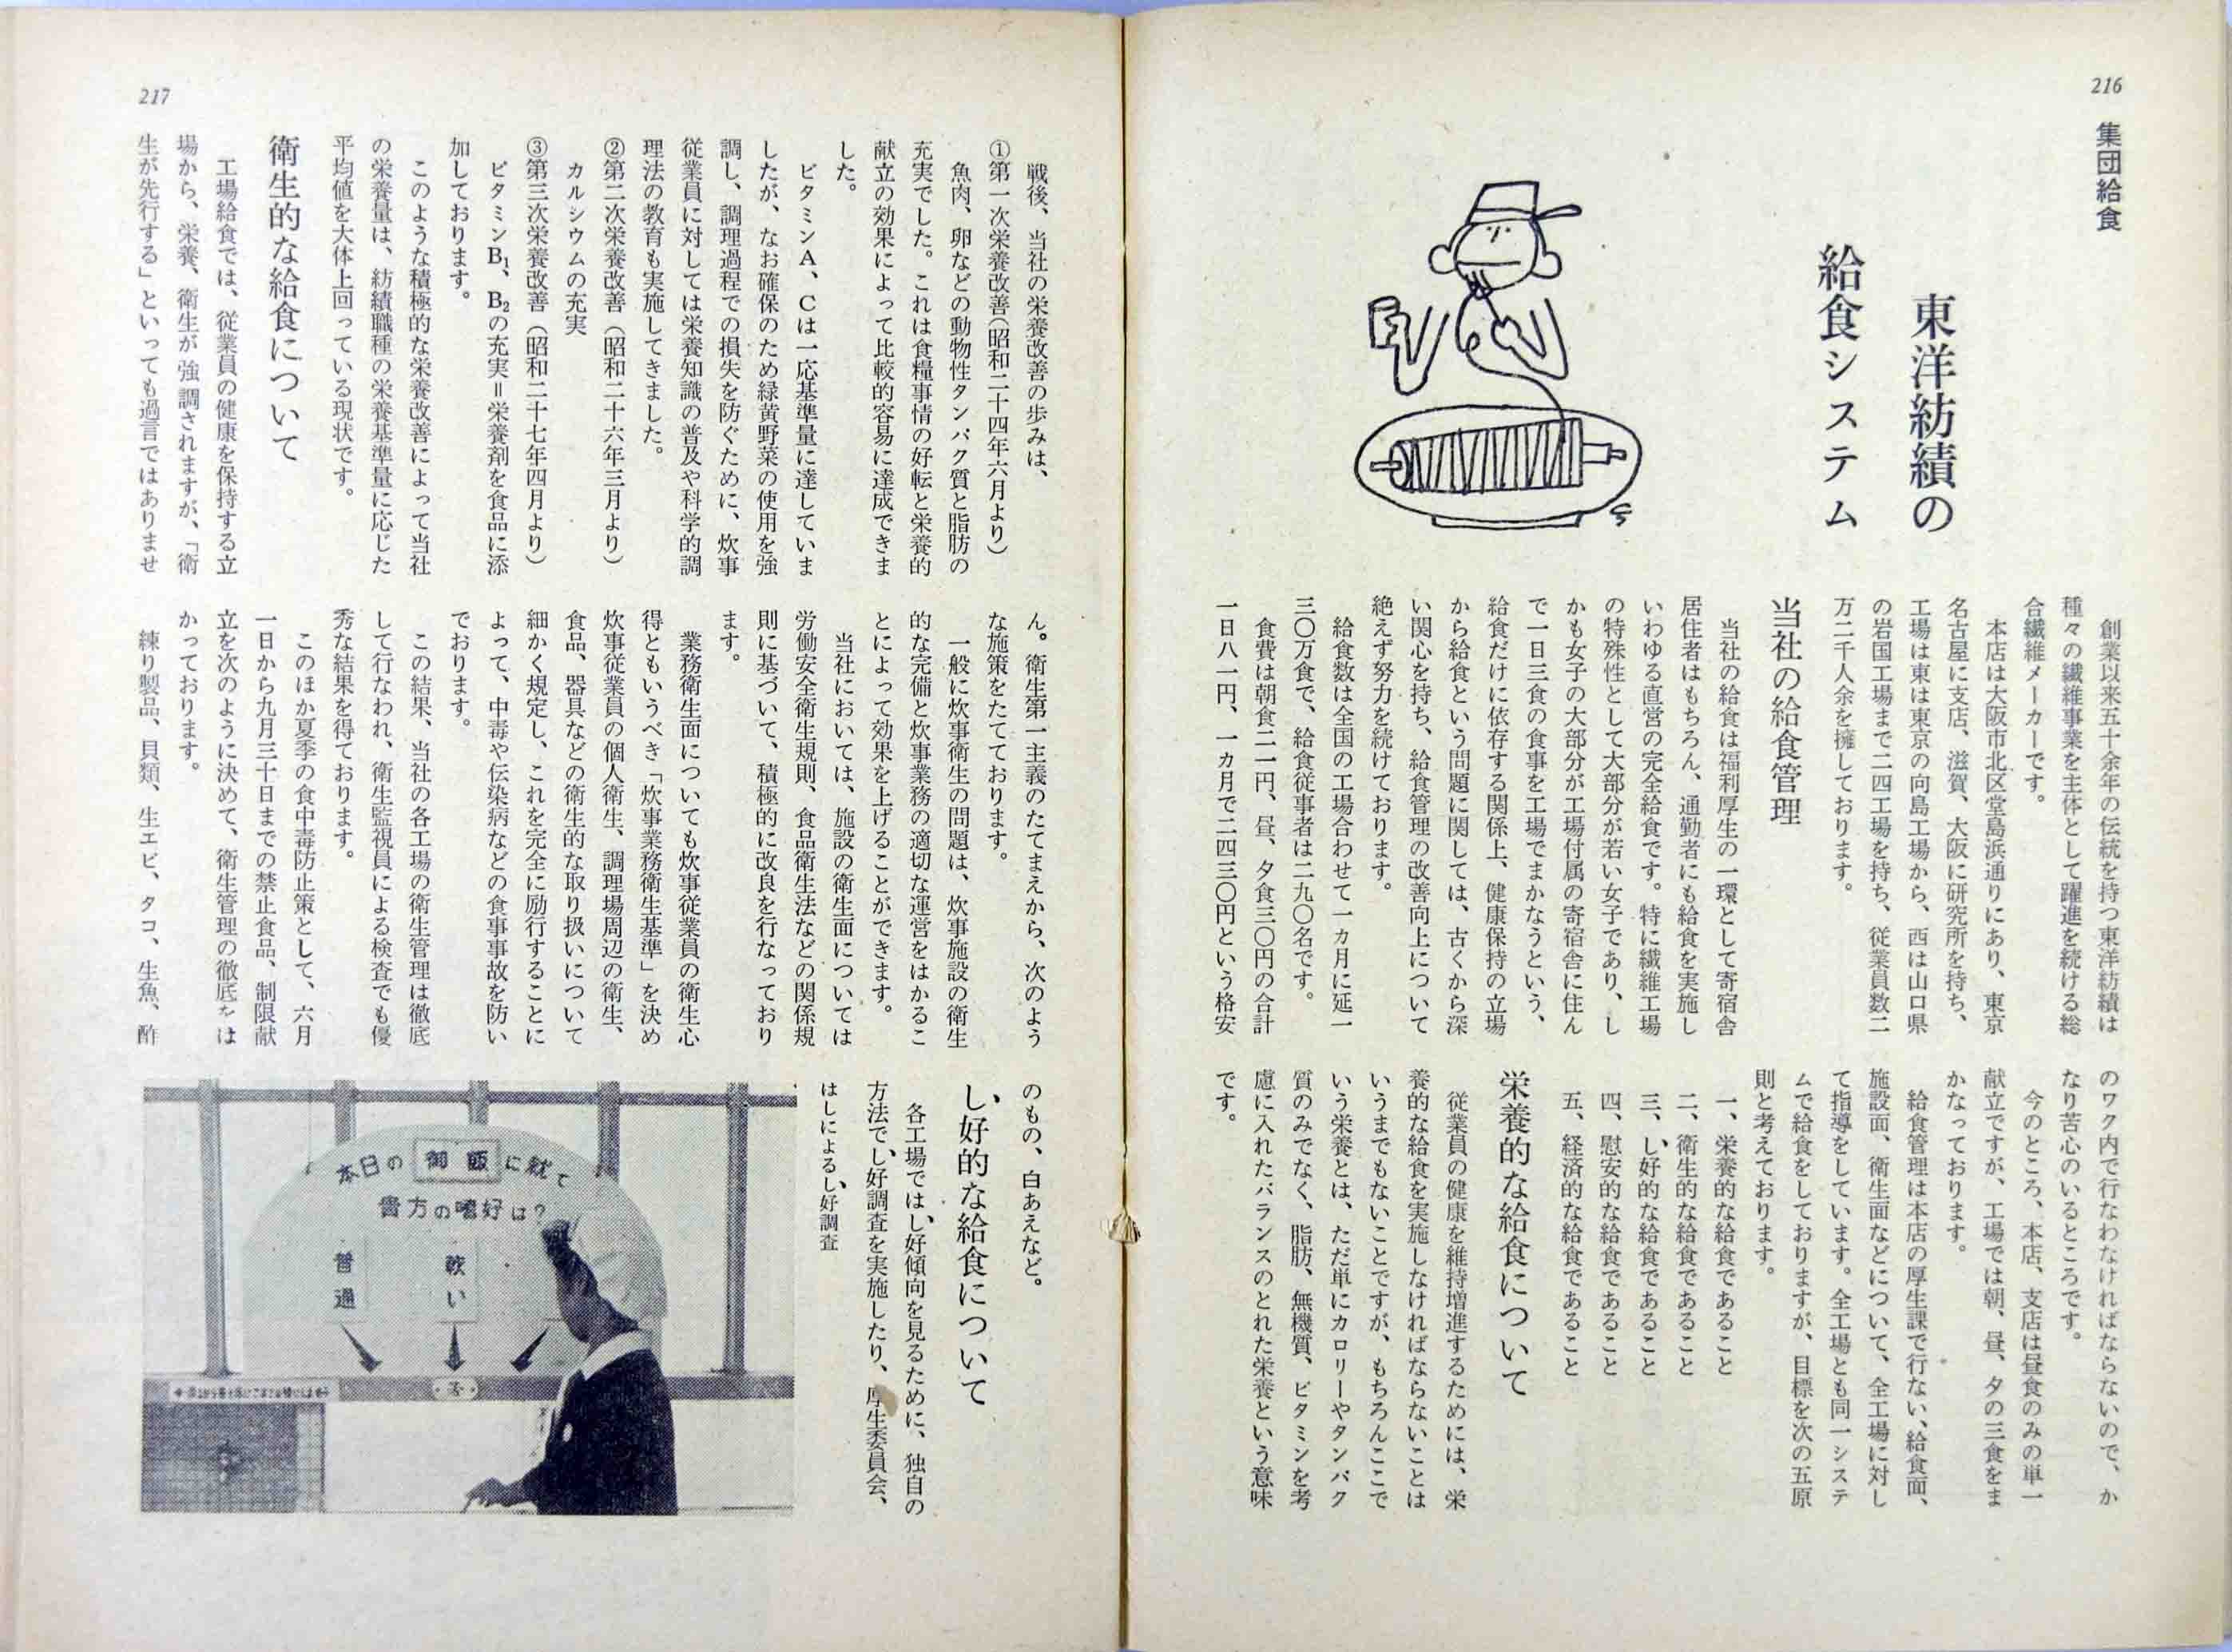 216
集団給食
東洋紡績の
給食システム
創業以来五十余年の伝統を持つ東洋紡績は
種々の繊維事業を主体として躍進を続ける総
合繊維メーカーです。
本店は大阪市北区堂島浜通りにあり、東京
名古屋に支店、滋賀、大阪に研究所を持ち、
工場は東は東京の向島工場から、西は山口県
の岩国工場まで二四工場を持ち、従業員数二
万二千人余を擁しております。
当社の給食管理
当社の給食は福利厚生の一環として寄宿舎
居住者はもちろん、通勤者にも給食を実施し
いわゆる直営の完全給食です。特に繊維工場
の特殊性として大部分が若い女子であり、し
かも女子の大部分が工場付属の寄宿舎に住ん
で一日三食の食事を工場でまかなうという、
給食だけに依存する関係上、健康保持の立場
から給食という問題に関しては、古くから深
い関心を持ち、給食管理の改善向上について
絶えず努力を続けております。
給食数は全国の工場合わせて一カ月に延一
三〇万食で、給食従事者は二九〇名です。
食費は朝食二一円、昼、夕食三〇円の合計
一日八一円、一カ月で二四三〇円という格安
のワク内で行なわなければならないので、か
なり苦心のいるところです。
今のところ、本店、支店は昼食のみの単一
献立ですが、工場では朝、昼、夕の三食をま
かなっております。
給食管理は本店の厚生課で行ない、給食面、
施設面、衛生面などについて、全工場に対し
て指導をしています。全工場とも同一システ
ムで給食をしておりますが、目標を次の五原
則と考えております。
一、栄養的な給食であること
二、衛生的な給食であること
三、し好的な給食であること
四、慰安的な給食であること
五、経済的な給食であること
栄養的な給食について
従業員の健康を維持増進するためには、栄
養的な給食を実施しなければならないことは
いうまでもないことですが、もちろんここで
いう栄養とは、ただ単にカロリーやタンパク
質のみでなく、脂肪、無機質、ビタミンを考
慮に入れたバランスのとれた栄養という意味
です。
217
戦後、当社の栄養改善の歩みは、
①第一次栄養改善（昭和二十四年六月より）
魚肉、卵などの動物性タンパク質と脂肪の
充実でした。これは食糧事情の好転と栄養的
献立の効果によって比較的容易に達成できま
した。
ビタミンA、Cは一応基準量に達していま
したが、なお確保のため緑黄野菜の使用を強
調し、調理過程での損失を防ぐために、炊事
従業員に対しては栄養知識の普及や科学的調
理法の教育も実施してきました。
②第二次栄養改善（昭和二十六年三月より）
カルシウムの充実
③第三次栄養改善（昭和二十七年四月より）
ビタミンB₁、B₂の充実＝栄養剤を食品に添
加しております。
このような積極的な栄養改善によって当社
の栄養量は、紡績職種の栄養基準量に応じた
平均値を大体上回っている現状です。
衛生的な給食について
工場給食では、従業員の健康を保持する立
場から、栄養、衛生が強調されますが、「衛
生が先行する」といっても過言ではありませ
ん。衛生第一主義のたてまえから、次のよう
な施策をたてております。
一般に炊事衛生の問題は、炊事施設の衛生
的な完備と炊事業務の適切な運営をはかるこ
とによって効果を上げることができます。
当社においては、施設の衛生面については
労働安全衛生規則、食品衛生法などの関係規
則に基づいて、積極的に改良を行なっており
ます。
業務衛生面についても炊事従業員の衛生心
得ともいうべき「炊事業務衛生基準」を決め
炊事従業員の個人衛生、調理場周辺の衛生、
食品、器具などの衛生的な取り扱いについて
細かく規定し、これを完全に励行することに
よって、中毒や伝染病などの食事事故を防い
でおります。
この結果、当社の各工場の衛生管理は徹底
して行なわれ、衛生監視員による検査でも優
秀な結果を得ております。
このほか夏季の食中毒防止策として、六月
一日から九月三十日までの禁止食品、制限献
立を次のように決めて、衛生管理の徹底をは
かっております。
練り製品、貝類、生エビ、タコ、生魚、酢
のもの、白あえなど。
し好的な給食について
各工場では、し好傾向を見るために、独自の
方法でし好調査を実施したり、厚生委員会、
はしによるし好調査
本日の御飯に就て
貴方の嗜好は？
軟い
普通